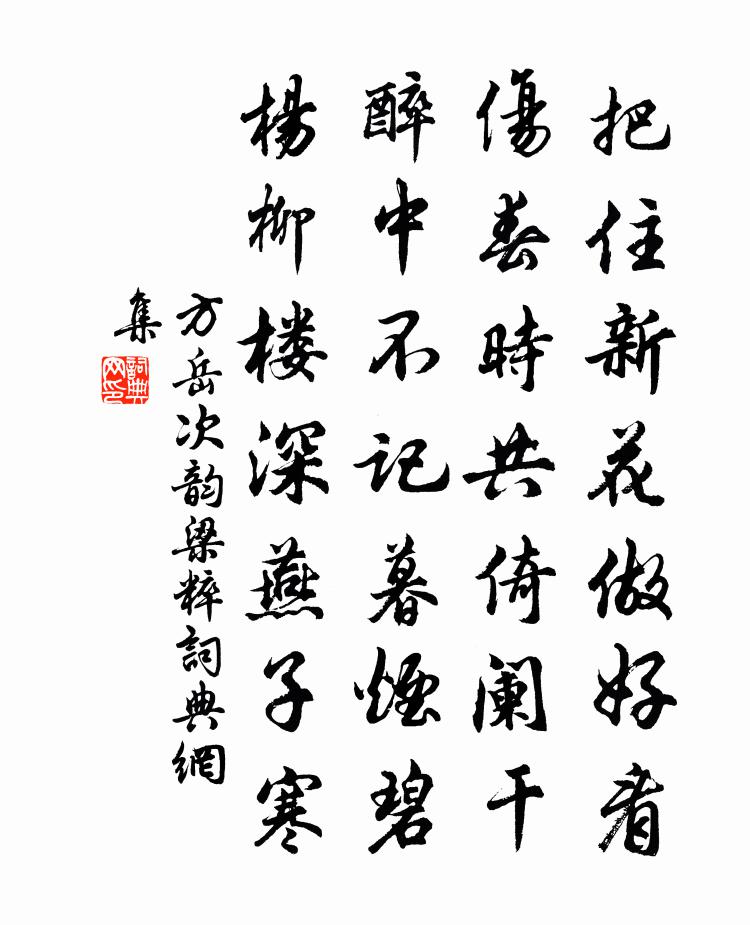 把住新花做好看
傷春時共倚阑干
醉中不记暮煙碧
楊柳楼深燕子寒
方岳次韵梁粹詞典網
集
詞典网印